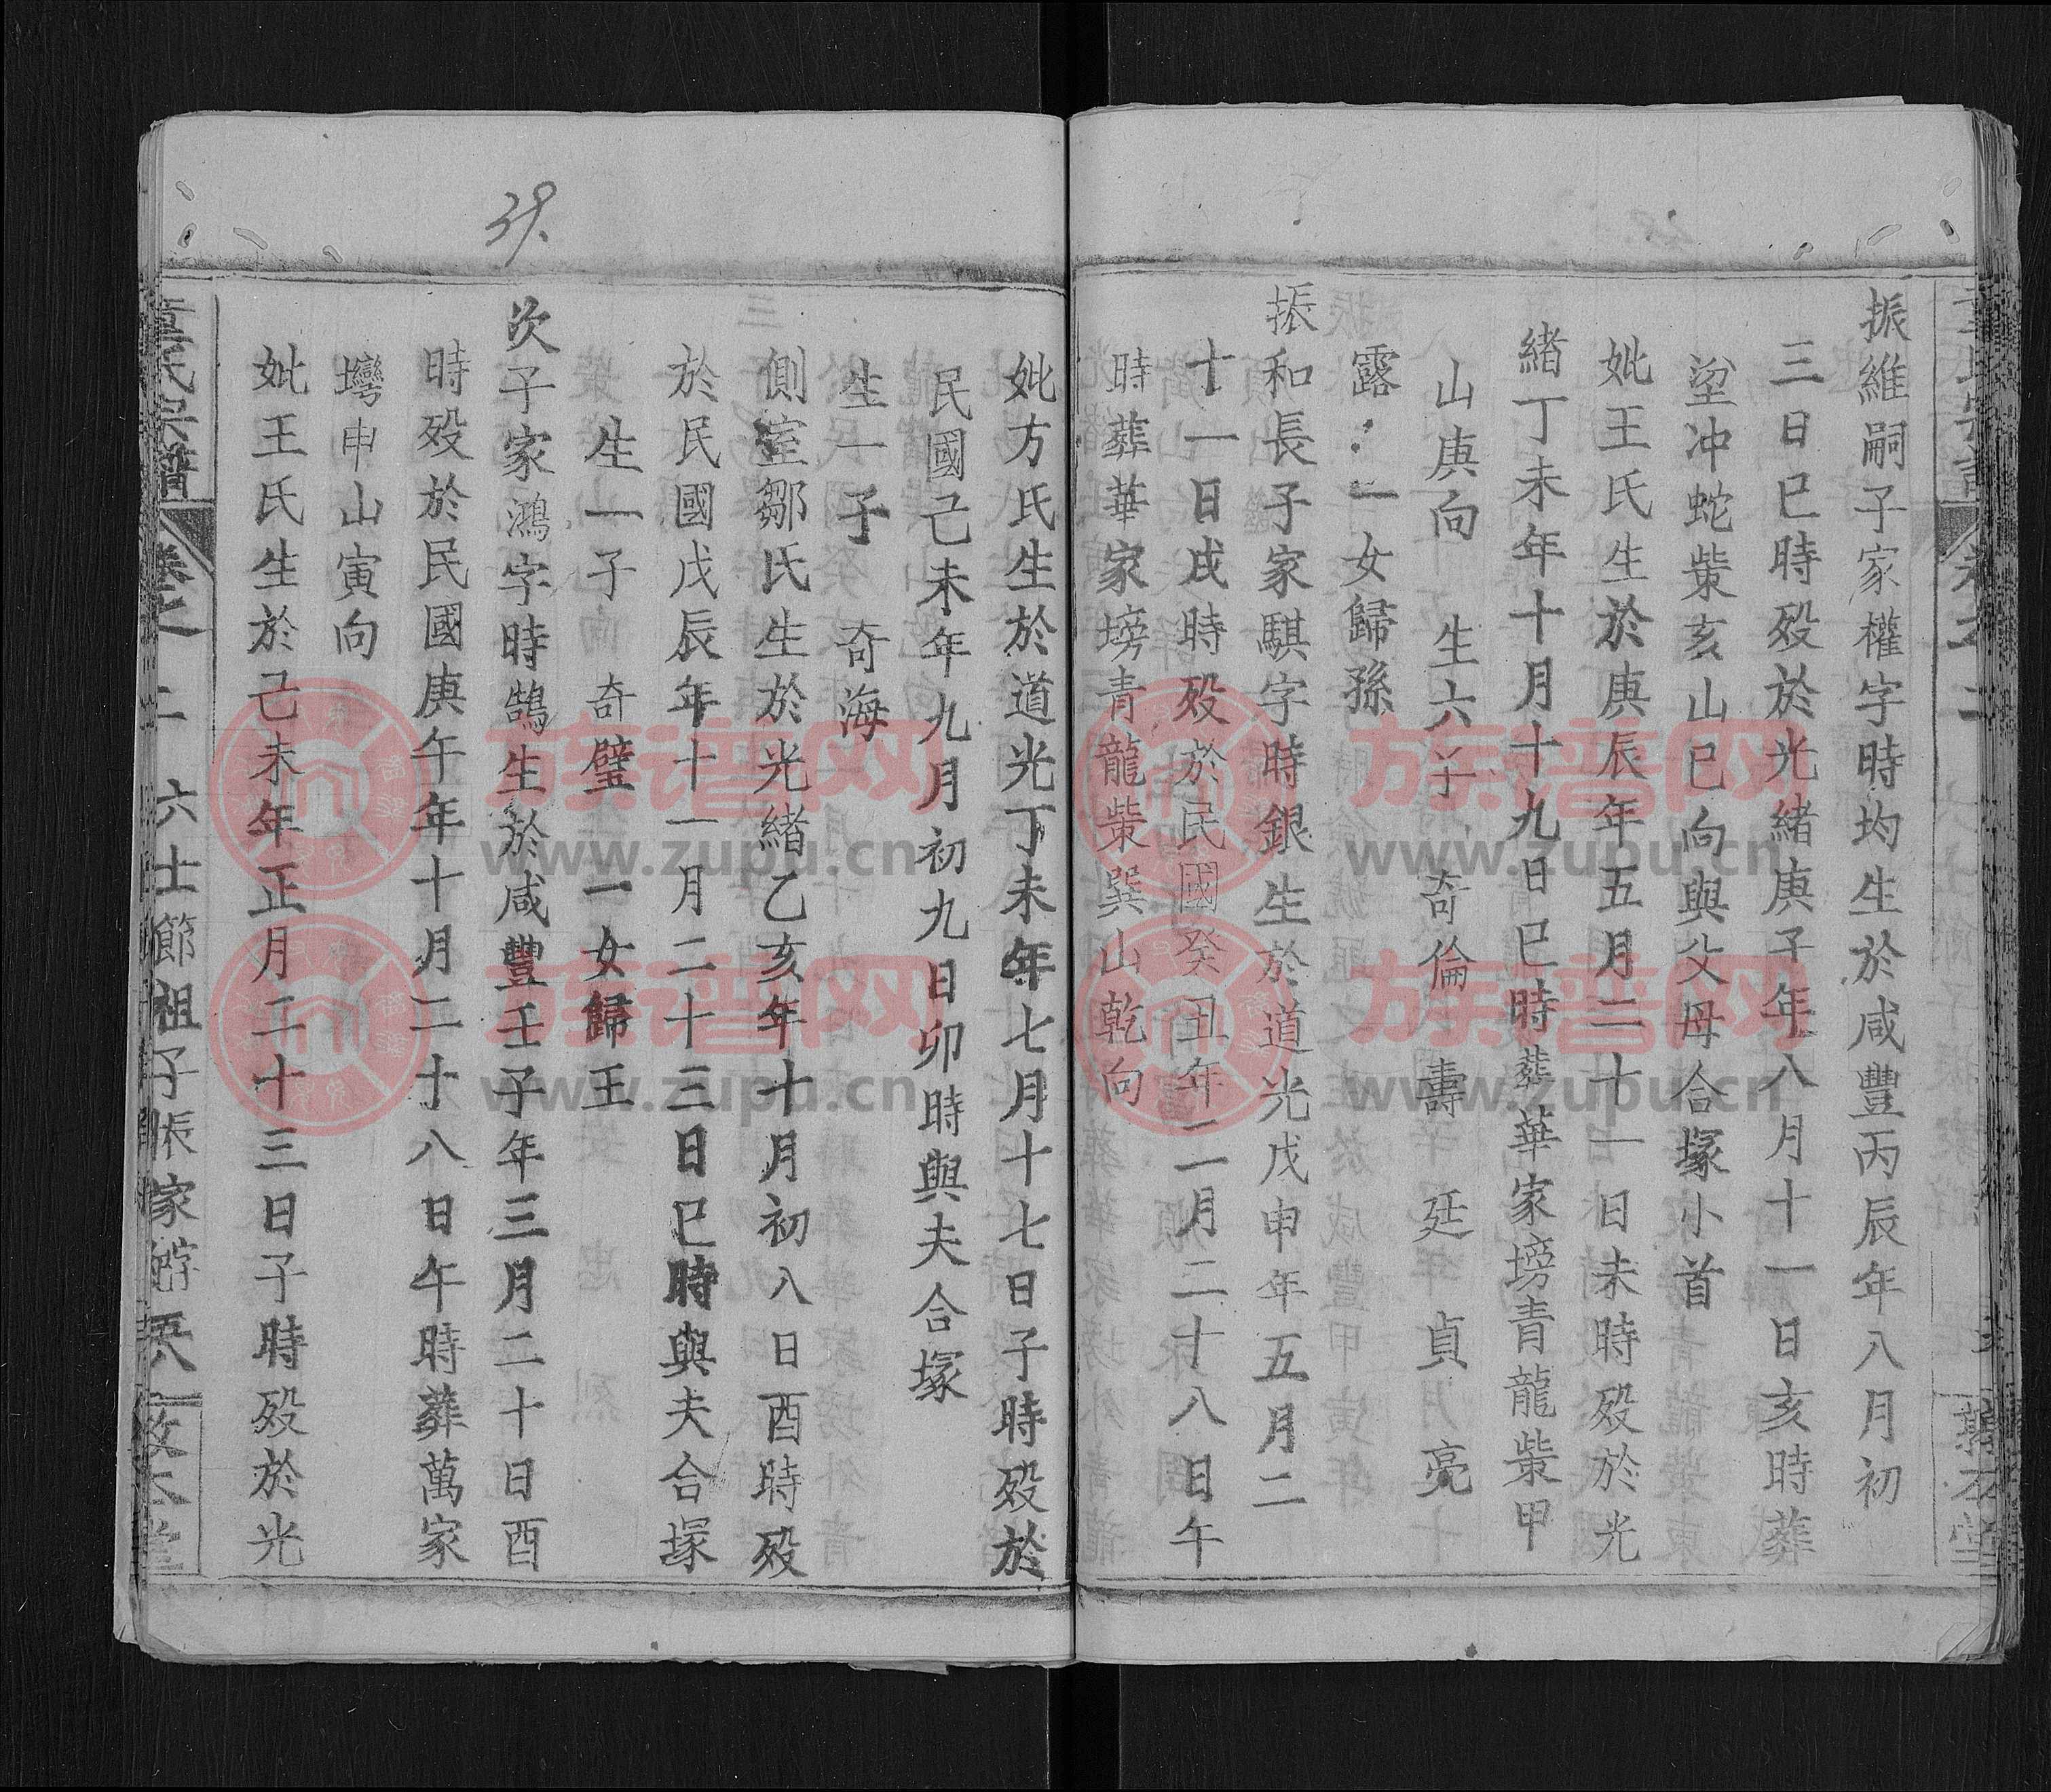 振維嗣子家權字時均生於咸豐丙辰年八月初
三日巳時殁於光緒庚子年八月十一日亥時葬
埾冲蛇柴亥山巳向與父母合塚小首
妣王氏生於庚辰年五月二十一日未時殁於光
緒丁未年十月十九日巳時葬華家塝青龍柴甲
山庚向 生六子 奇倫 壽 廷 貞 亮
露 一女歸孫
振和長子家騏字時銀生於道光戊申年五月二
十一日戌時殁於民國癸丑年二月二十八日午
時葬華家塝青龍柴巽山乾向
妣方氏生於道光丁未年七月十七日子時殁於
民國己未年九月初九日卯時與夫合塚
生一子 奇海
側室鄒氏生於光緒乙亥年十月初八日酉時殁
於民國戊辰年十一月二十三日巳時與夫合塚
生一子 奇璧 一女歸王
次子家鴻字時鵠生於咸豐壬子年三月二十日酉
時殁於民國庚午年十月二十八日午時葬萬家
壪申山寅向
妣王氏生於己未年正月二十三日子時殁於光
氏宗譜 卷之二 六士節祖子振家 敦本堂
39.
族谱网
www.zupu.cn
族谱网
www.zupu.cn
族谱网
www.zupu.cn
族谱网
www.zupu.cn